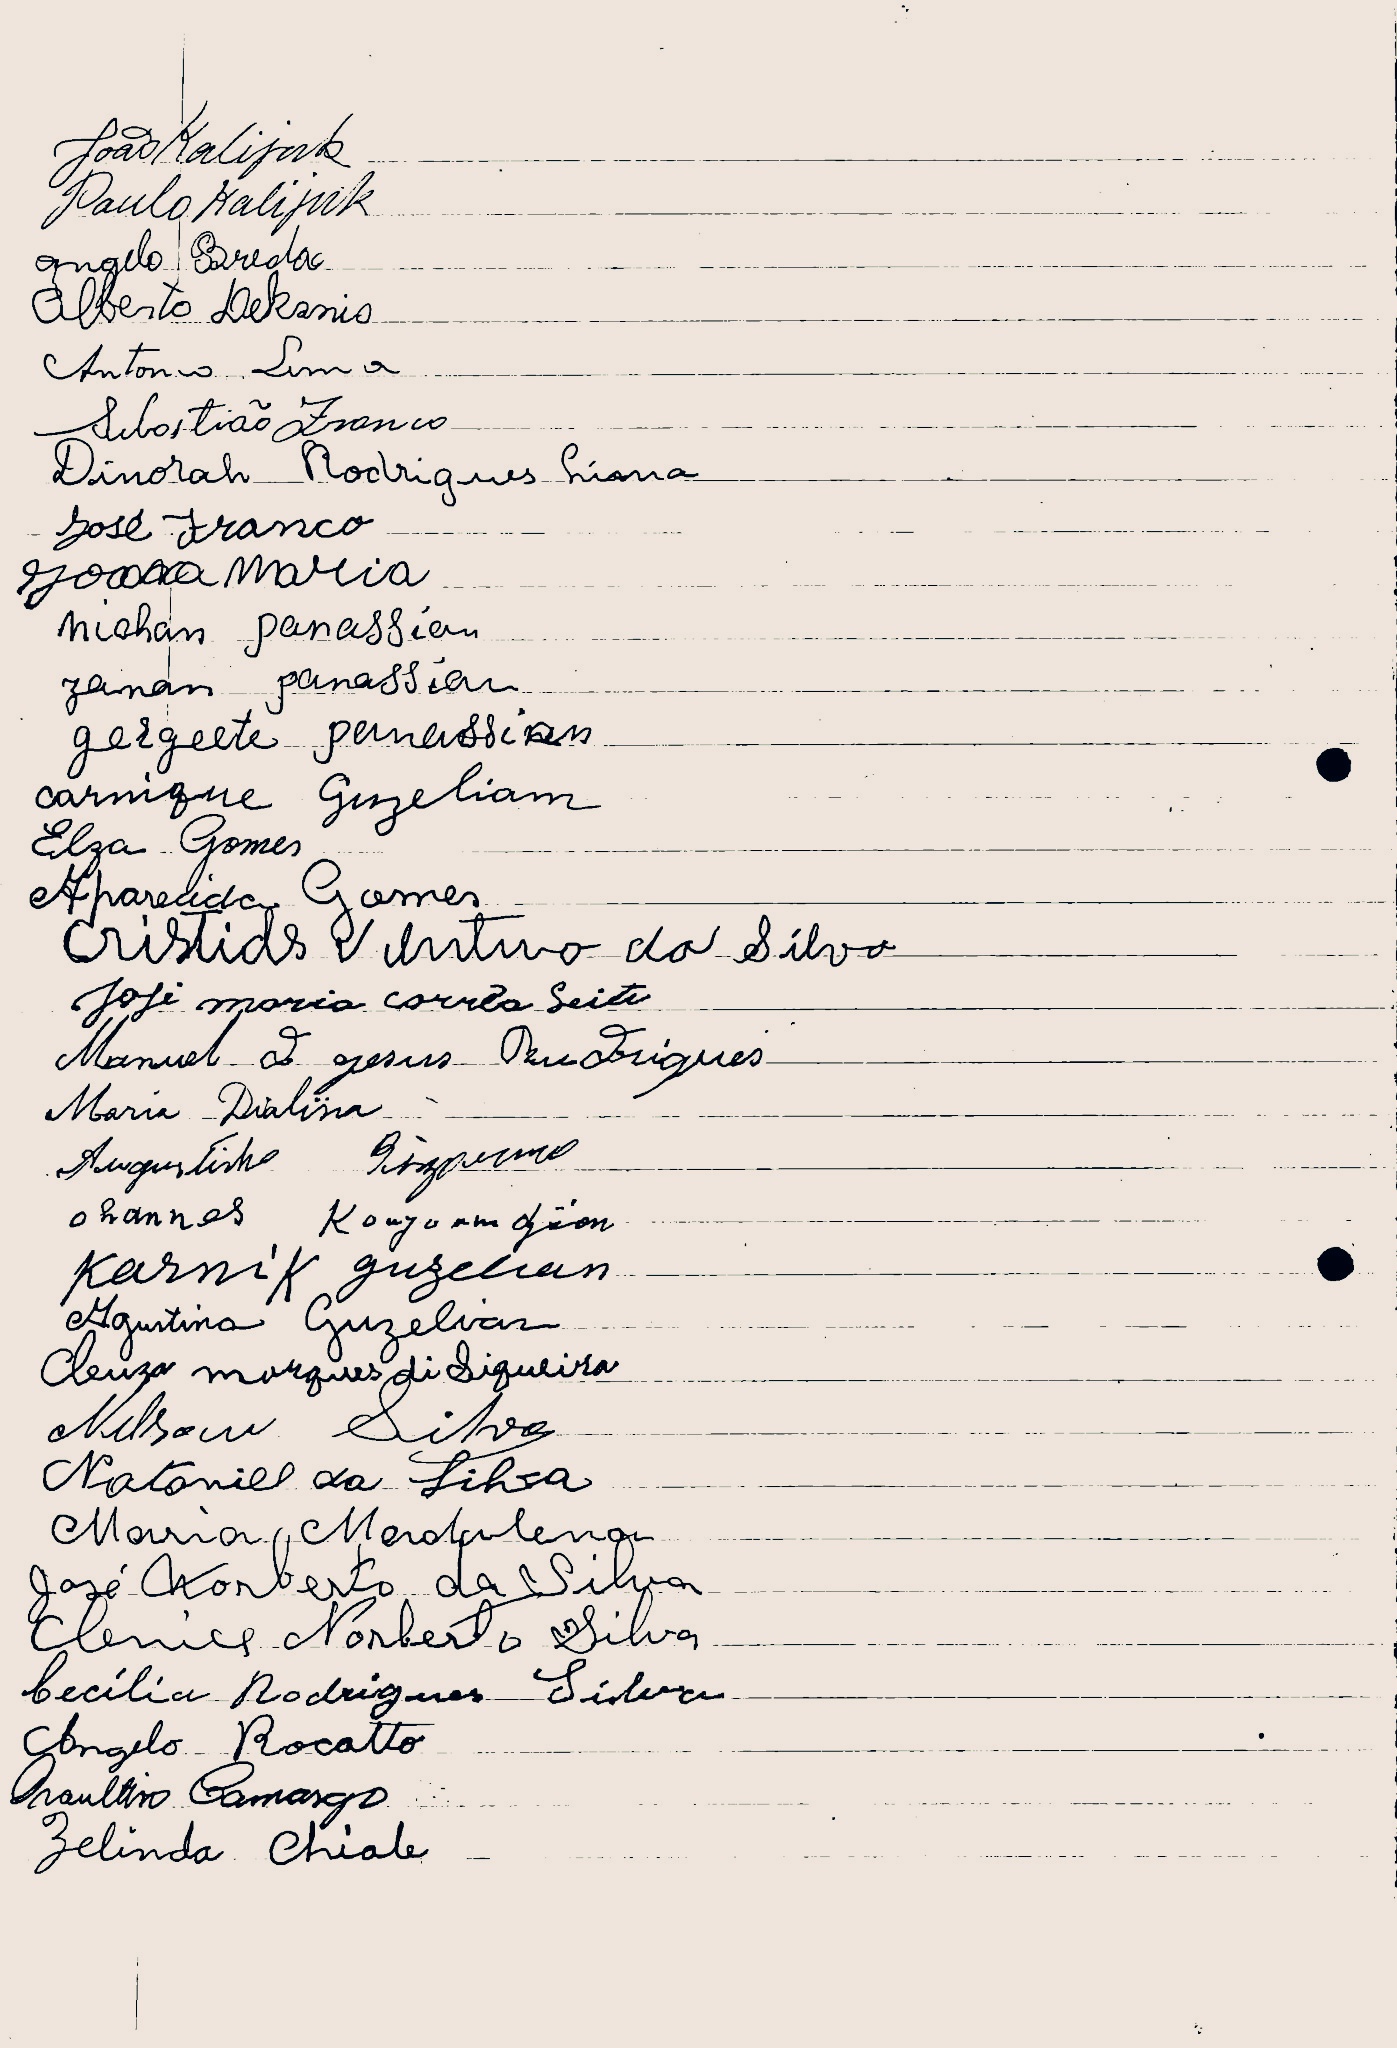 João Kalijuk
Paulo Kalijuk
Angelo Bredac
Alberto Dekanio
Antonio Lima
Sebastião Franco
Dinorah Rodrigues Liana
José Franco
Joana Maria
Nishan panassian
zanan panassian
gergeete panassian
carnique Guzeliam
Elza Gomes
Aparecida Gomes
Cristids da Silva
José maria corrêa Leite
Manuel D Jesus Rudrigues
Maria Dialina
Augustinho
ohannes Kouyoumdjian
Karnik guzelian
Agustina Guzelian
Cleuza marques di Siqueira
Nelson Silva
Nataniel da Silva
Maria Merdalena
José Norberto da Silva
Clenice Norberto Silva
Cecília Rodrigues Silva
Angelo Rocatto
Camargo
Zelinda Chiale